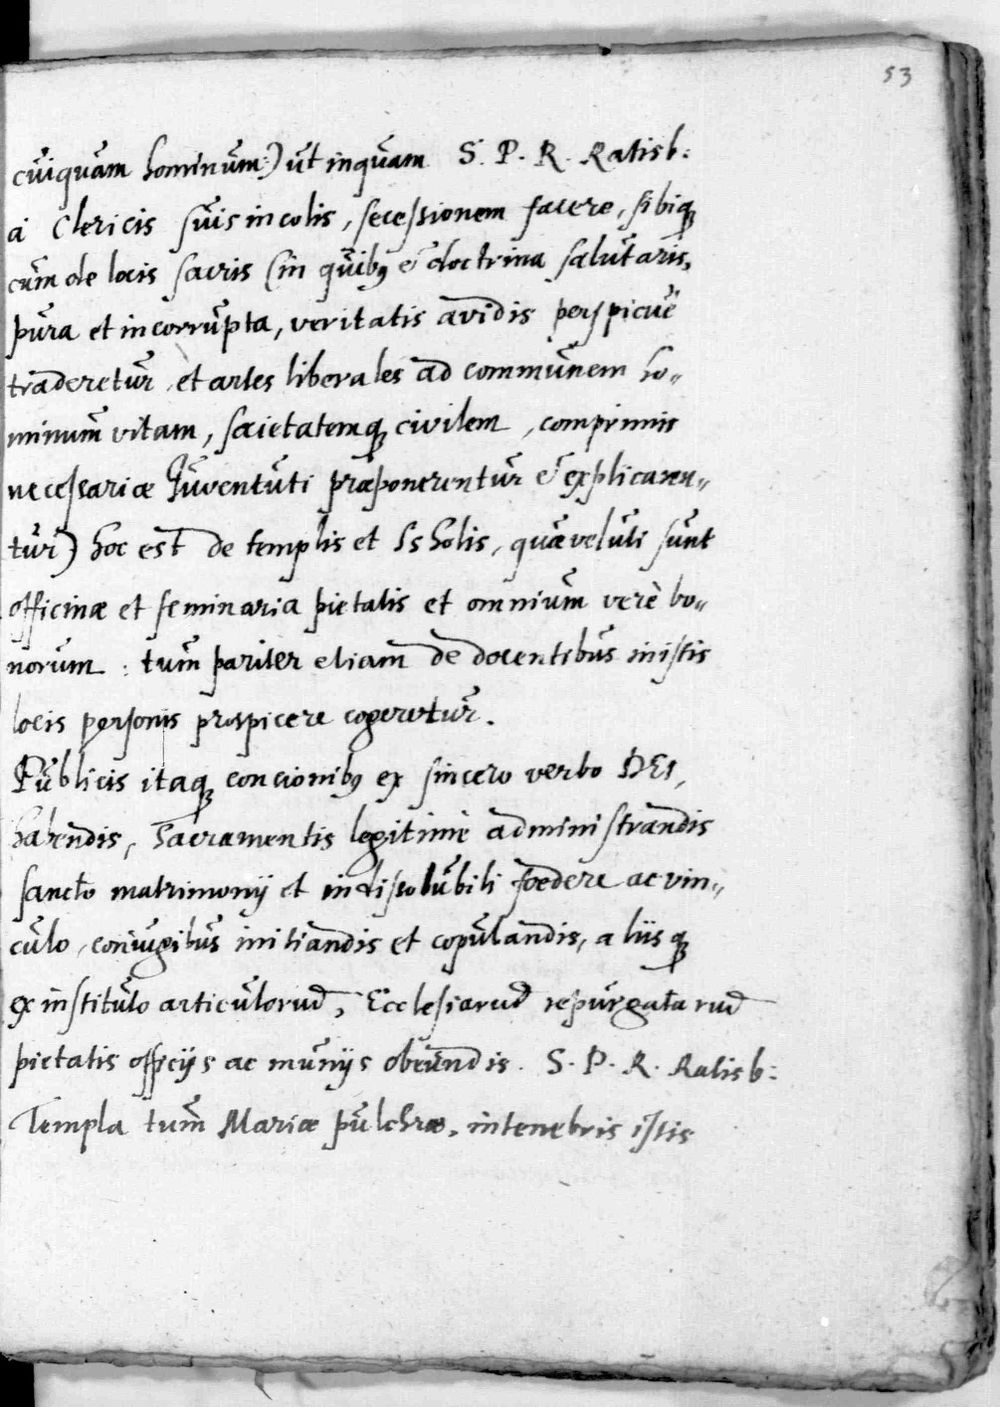 53
cuiquam hominum:) ut inquam S. P. R. Ratisb:
à Clericis suis incolis, secessionem facere, sibiq;
cum de locis sacris (in quibus et doctrina salutaris,
pura et incorrupta, veritatis avidis perspicuè
traderetur, et artes liberales ad communem ho-
minum vitam, societatemq; civilem, comprimis
necessariæ Juventuti præponerentur et explicaren-
tur) hoc est de templis et Scholis, quæ veluti sunt
officinæ et seminaria pietatis et omnium verè bo-
norum: tum pariter etiam de docentibus in istis
locis personis prospicere cogeretur.
Publicis itaq; concionibus ex sincero verbo DEI,
habendis, Sacramentis legitimè administrandis
sancto matrimonij et indissolubili foedere ac vin-
culo, coniugibus initiandis et copulandis, aliisq;
ex instituto articulorum, Ecclesiarum repurgatarum
pietatis officijs ac munijs obeundis. S. P. R. Ratisb:
Templa tum Mariæ pulchræ, in tenebris istis